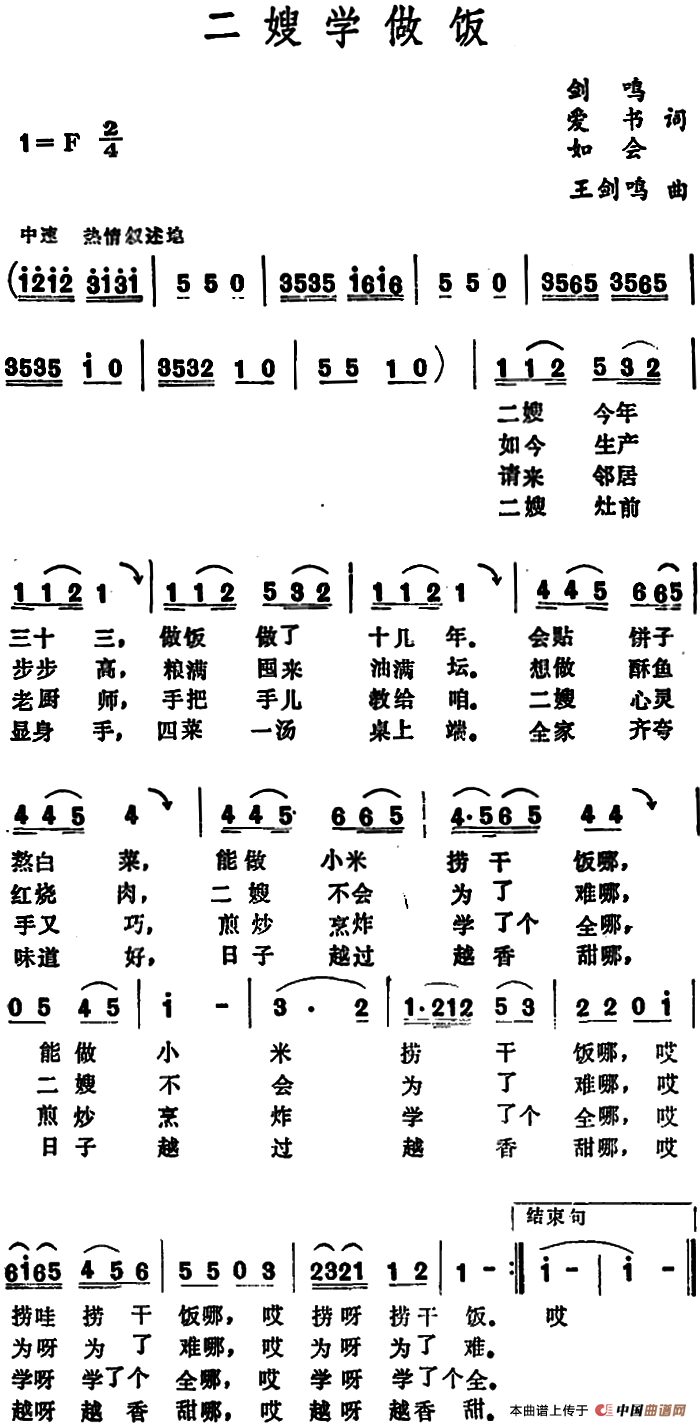 二嫂学做饭
剑 鸣
爱 书 词
如 会
1=F 2/4
王剑鸣 曲
中速 热情叙述地
(i2i2 3i3i | 5 5 0 | 3535 i6i6 | 5 5 0 | 3565 3565 |
3535 i 0 | 3532 1 0 | 5 5 1 0 ) | 1 1 2 5 3 2 |
二嫂 今年
如今 生产
请来 邻居
二嫂 灶前
1 1 2 1 | 1 1 2 5 3 2 | 1 1 2 1 | 4 4 5 6 6 5 |
三十 三，做饭 做了 十几 年。会贴 饼子
步步 高，粮满 囤来 油满 坛。想做 酥鱼
老厨 师，手把 手儿 教给 咱。二嫂 心灵
显身 手，四菜 一汤 桌上 端。全家 齐夸
4 4 5 4 | 4 4 5 6 6 5 | 4·5 6 5 4 4 |
熬白 菜，能做 小米 捞干 饭哪，
红烧 肉，二嫂 不会 为了 难哪，
手又 巧，煎炒 烹炸 学了个 全哪，
味道 好，日子 越过 越香 甜哪，
0 5 4 5 | i - | 3 · 2 | 1·212 5 3 | 2 2 0 i |
能做 小 米 捞 干 饭哪，哎
二嫂 不 会 为 了 难哪，哎
煎炒 烹 炸 学 了个 全哪，哎
日子 越 过 越 香 甜哪，哎
结束句
6i65 4 5 6 | 5 5 0 3 | 2321 1 2 | 1 - :‖ i - | i - ‖
捞哇 捞 干 饭哪，哎 捞呀 捞干 饭。 哎
为呀 为 了 难哪，哎 为呀 为了 难。
学呀 学了个 全哪，哎 学呀 学了个 全。
越呀 越 香 甜哪，哎 越呀 越香 甜。
本曲谱上传于 中国曲谱网